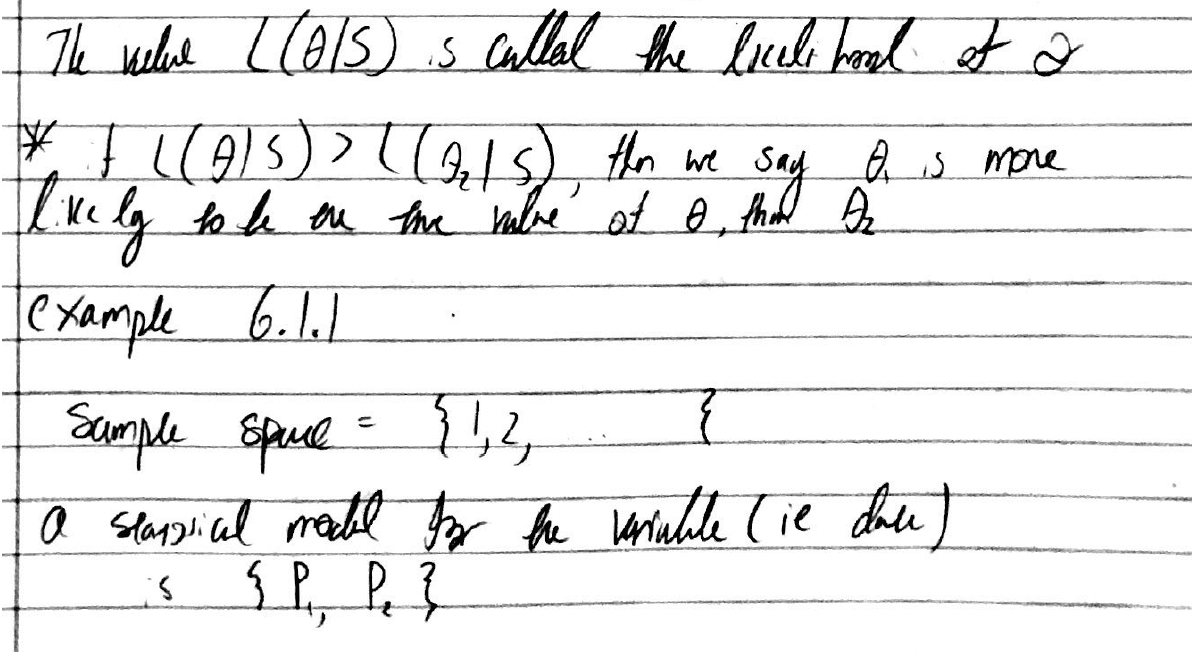 The value L(θ|S) is called the likelihood of θ
* if L(θ|S) > L(θ₂|S), then we say θ₁ is more
likely to be the true value of θ, than θ₂
example 6.1.1
Sample space = { 1, 2, ... }
a statistical model for the variable (ie data)
is { P₁, P₂ }